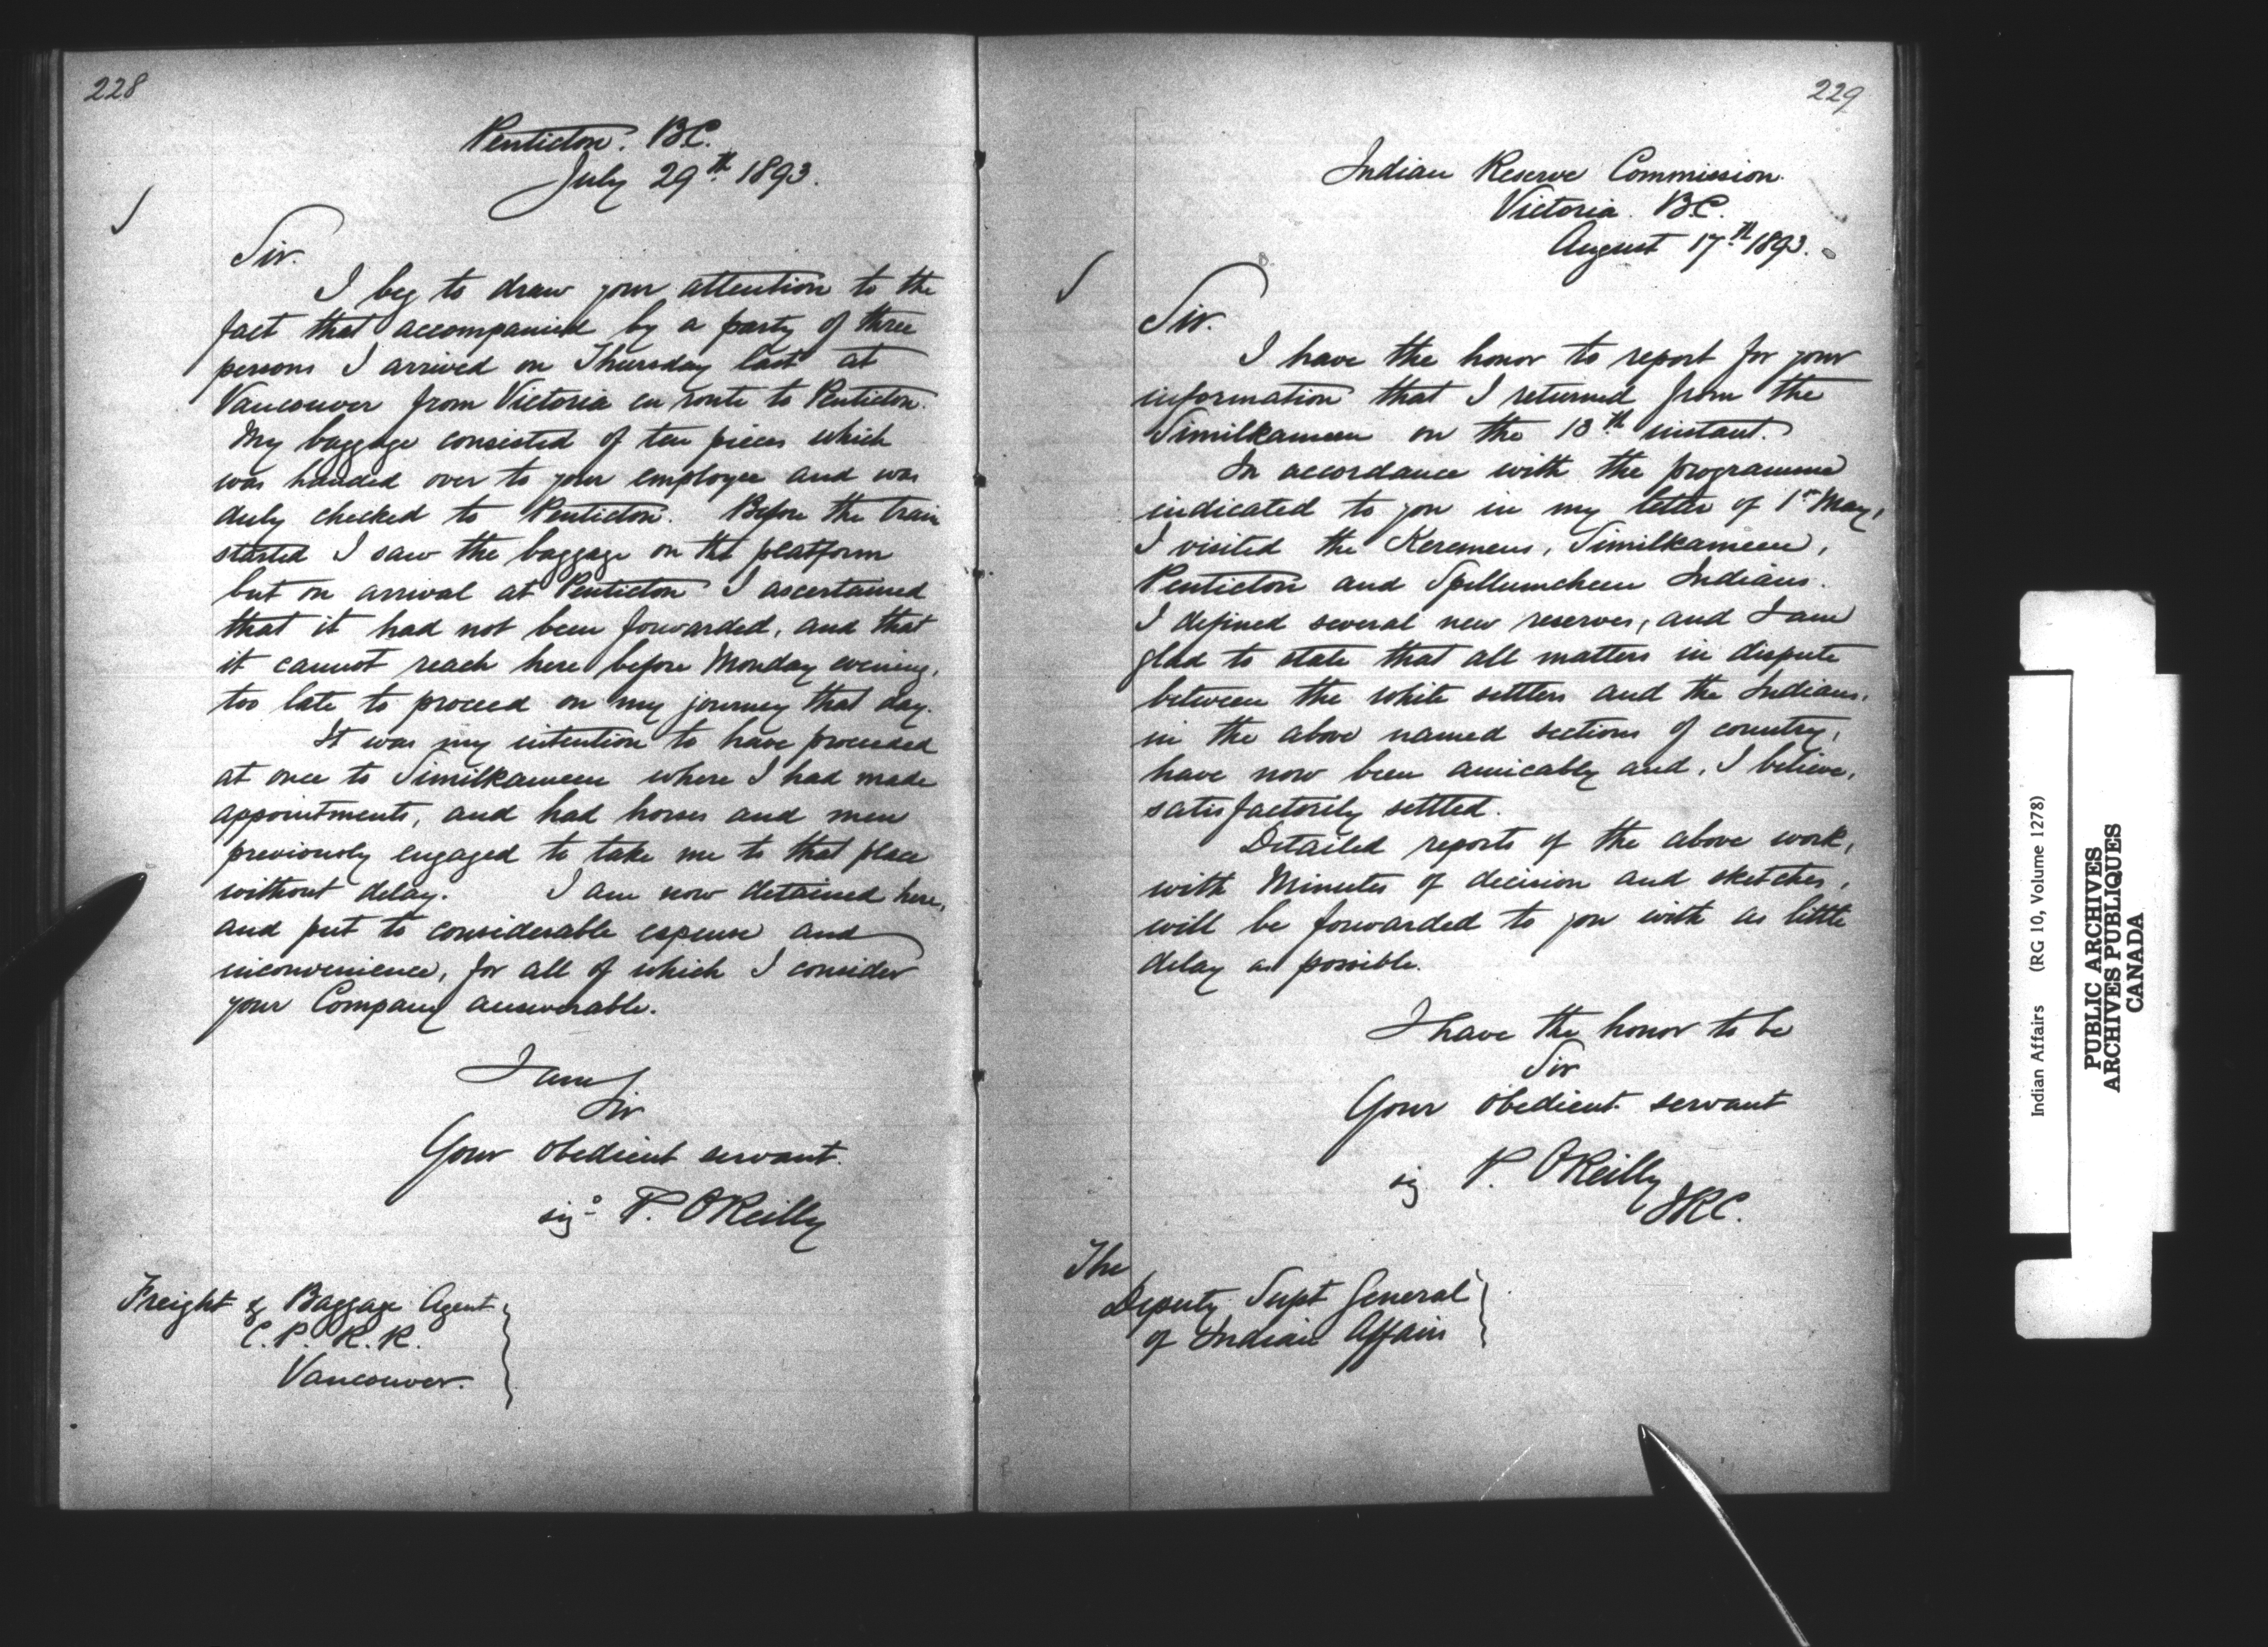 228
Penticton. B.C.
July 29th 1893.
Sir.
I beg to draw your attention to the
fact that accompanied by a party of three
persons I arrived on Thursday last at
Vancouver from Victoria en route to Penticton.
My baggage consisted of ten pieces which
was handed over to your employee and was
duly checked to Penticton. Before the train
started I saw the baggage on the platform
but on arrival at Penticton I ascertained
that it had not been forwarded, and that
it cannot reach here before Monday evening,
too late to proceed on my journey that day.
It was my intention to have proceeded
at once to Similkameen where I had made
appointments, and had horses and men
previously engaged to take me to that place
without delay. I am now detained here,
and put to considerable expense and
inconvenience, for all of which I consider
your Company answerable.
I am
Sir
Your obedient servant.
sigd P. OReilly
Freight & Baggage Agent
C. P. R. R.
Vancouver.
229
Indian Reserve Commission.
Victoria. B.C.
August 17th 1893.
Sir.
I have the honor to report for your
information that I returned from the
Similkameen on the 13th instant.
In accordance with the programme
indicated to you in my letter of 1st May,
I visited the Keremeus, Similkameen,
Penticton and Spellumcheen Indians.
I defined several new reserves, and I am
glad to state that all matters in dispute
between the white settlers and the Indians,
in the above named sections of country,
have now been amicably and, I believe,
satisfactorily settled.
Detailed reports of the above work,
with Minutes of decision and sketches,
will be forwarded to you with as little
delay as possible.
I have the honor to be
Sir
Your obedient servant
sig P. OReilly
IRC.
The
Deputy Supt General
of Indian Affairs
Indian Affairs (RG 10, Volume 1278)
PUBLIC ARCHIVES
ARCHIVES PUBLIQUES
CANADA